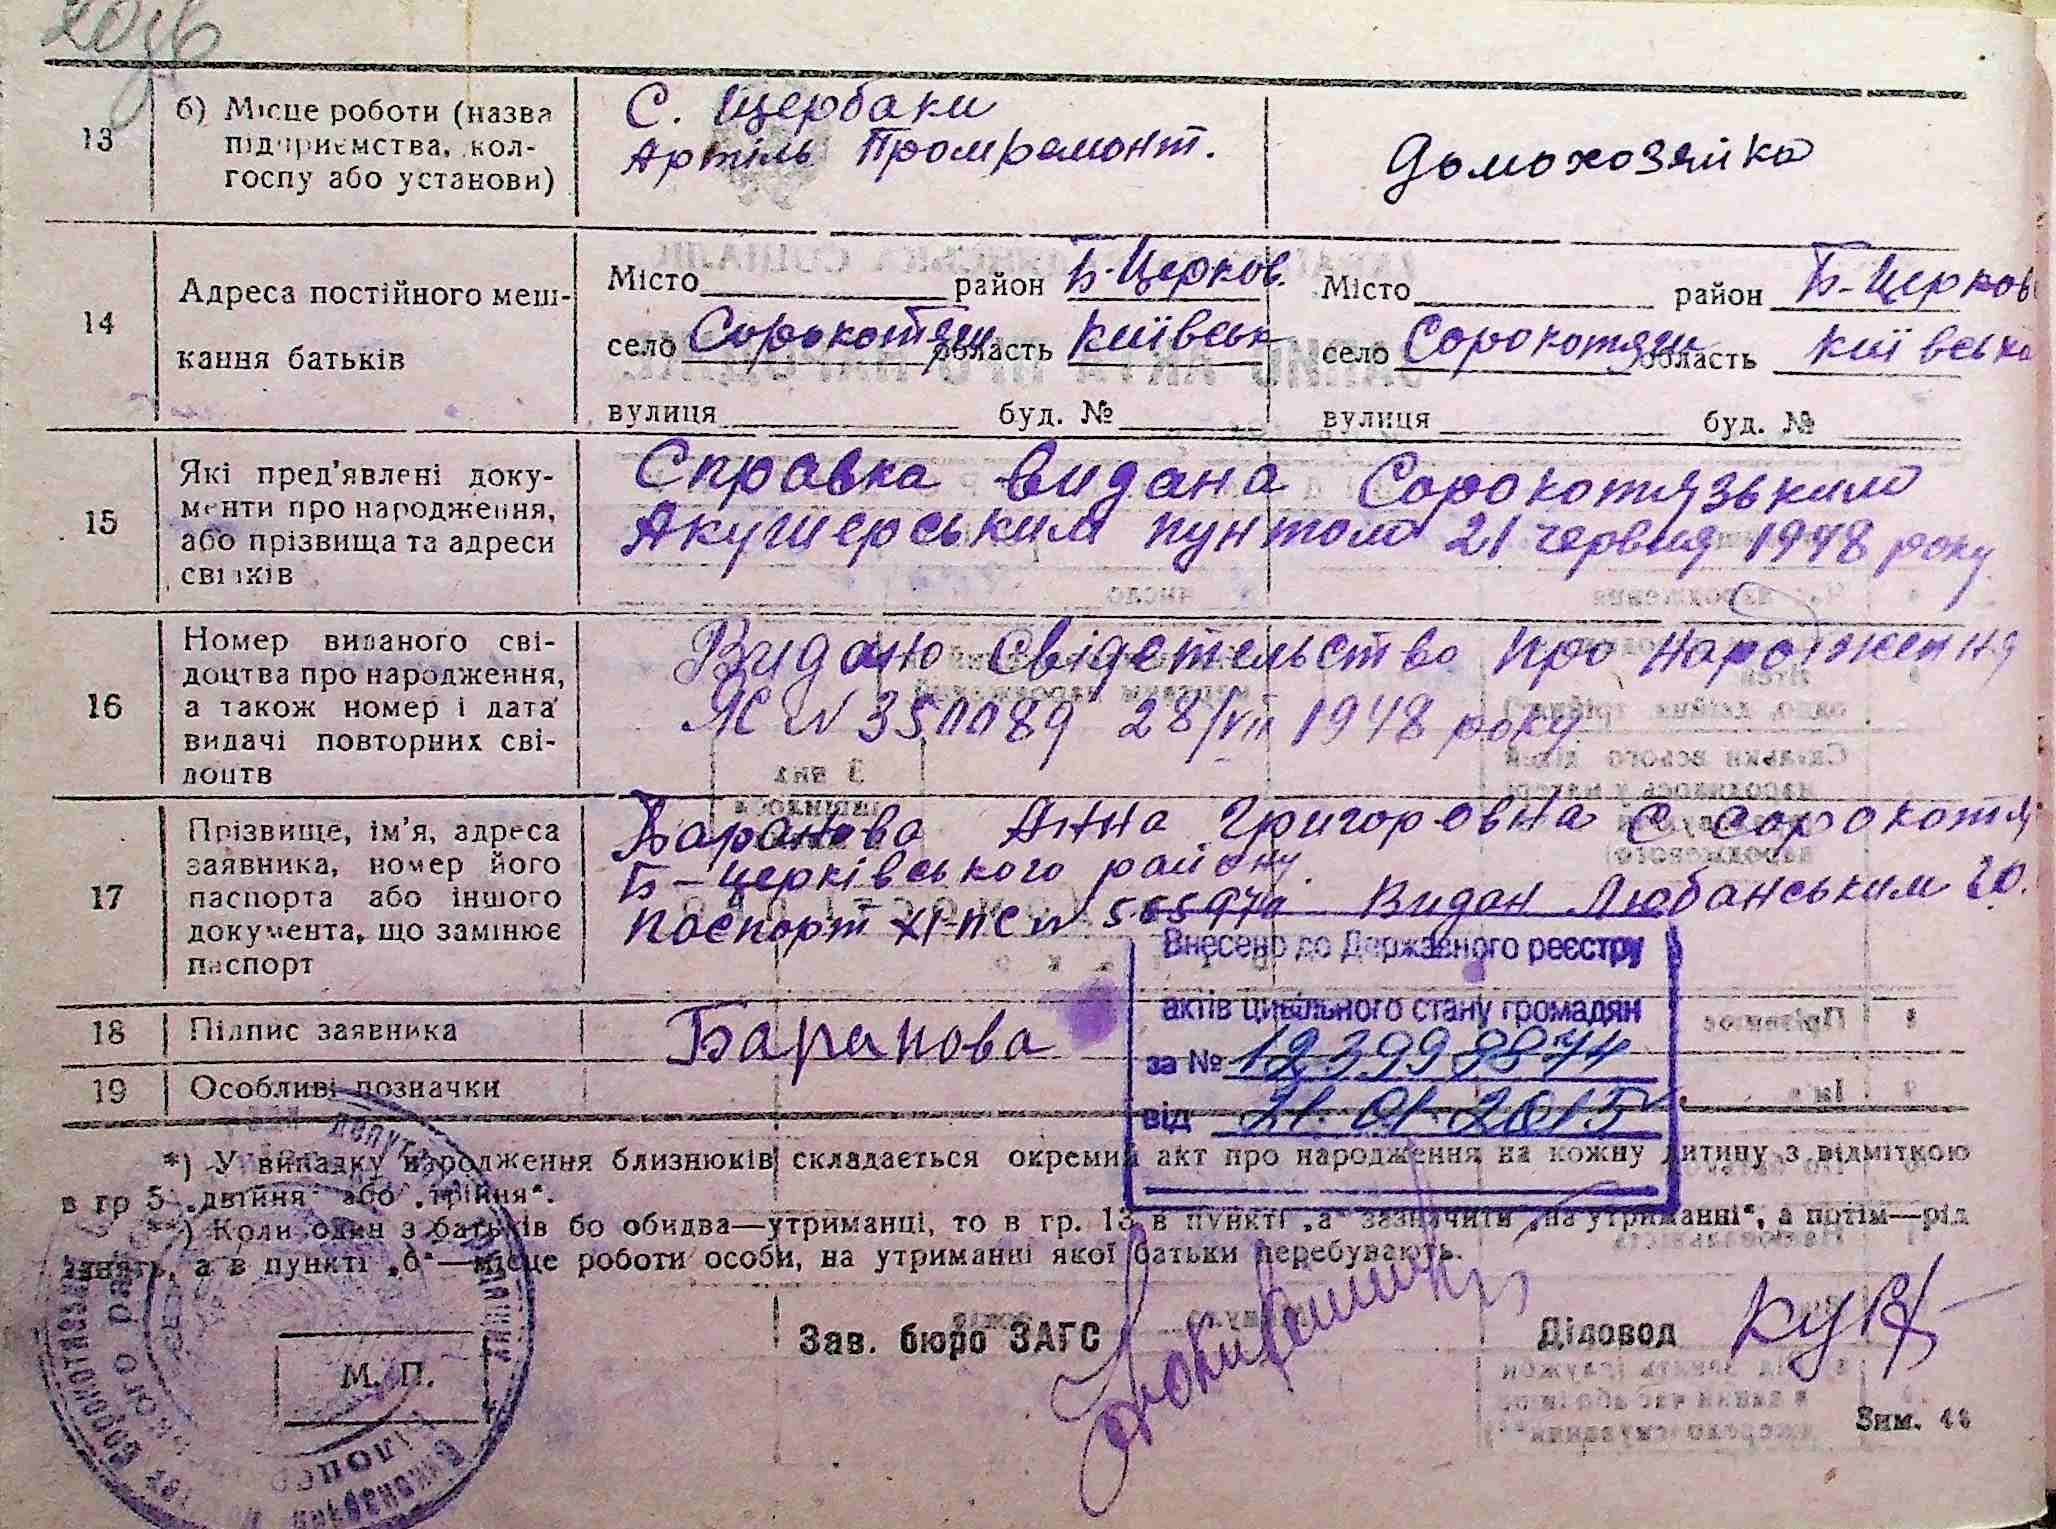 13
б) Місце роботи (назва
підприємства, кол-
госпу або установи)
С. Щербаки
Артіль Промремонт.
Домохозяйка
14
Адреса постійного меш-
кання батьків
Місто район Б-Церков.
село Сорокотяги область Київськ
вулиця буд. №
Місто район Б-Церков
село Сорокотяги область Київська
вулиця буд. №
15
Які пред'явлені доку-
менти про народження,
або прізвища та адреси
свідків
Справка видана Сорокотязьким
Акушерським пунтом 21 червня 1948 року
16
Номер виданого сві-
доцтва про народження,
а також номер і дата
видачі повторних сві-
доцтв
Видано свідетельство про народження
ЯС № 350089 28/VII 1948 року
17
Прізвище, ім'я, адреса
заявника, номер його
паспорта або іншого
документа, що замінює
паспорт
Баранова Анна Григоровна С Сорокотяг
Б-церківського району.
Паспорт XI-ПС № Видан Любанським
18
Підпис заявника
Баранова
19
Особливі позначки
Внесено до Державного реєстру
актів цивільного стану громадян
за №
від 21.01.2015
*) У випадку народження близнюків складається окремий акт про народження на кожну дитину з відміткою
в гр 5 „двійня“ або „трійня“.
**) Коли один з батьків бо обидва—утриманці, то в гр. 13 в пункті „а“ зазначити „на утриманні“, а потім—рід
занять, а в пункті „б“—місце роботи особи, на утриманні якої батьки перебувають.
Зав. бюро ЗАГС
Діловод
М. П.
Зим. 46